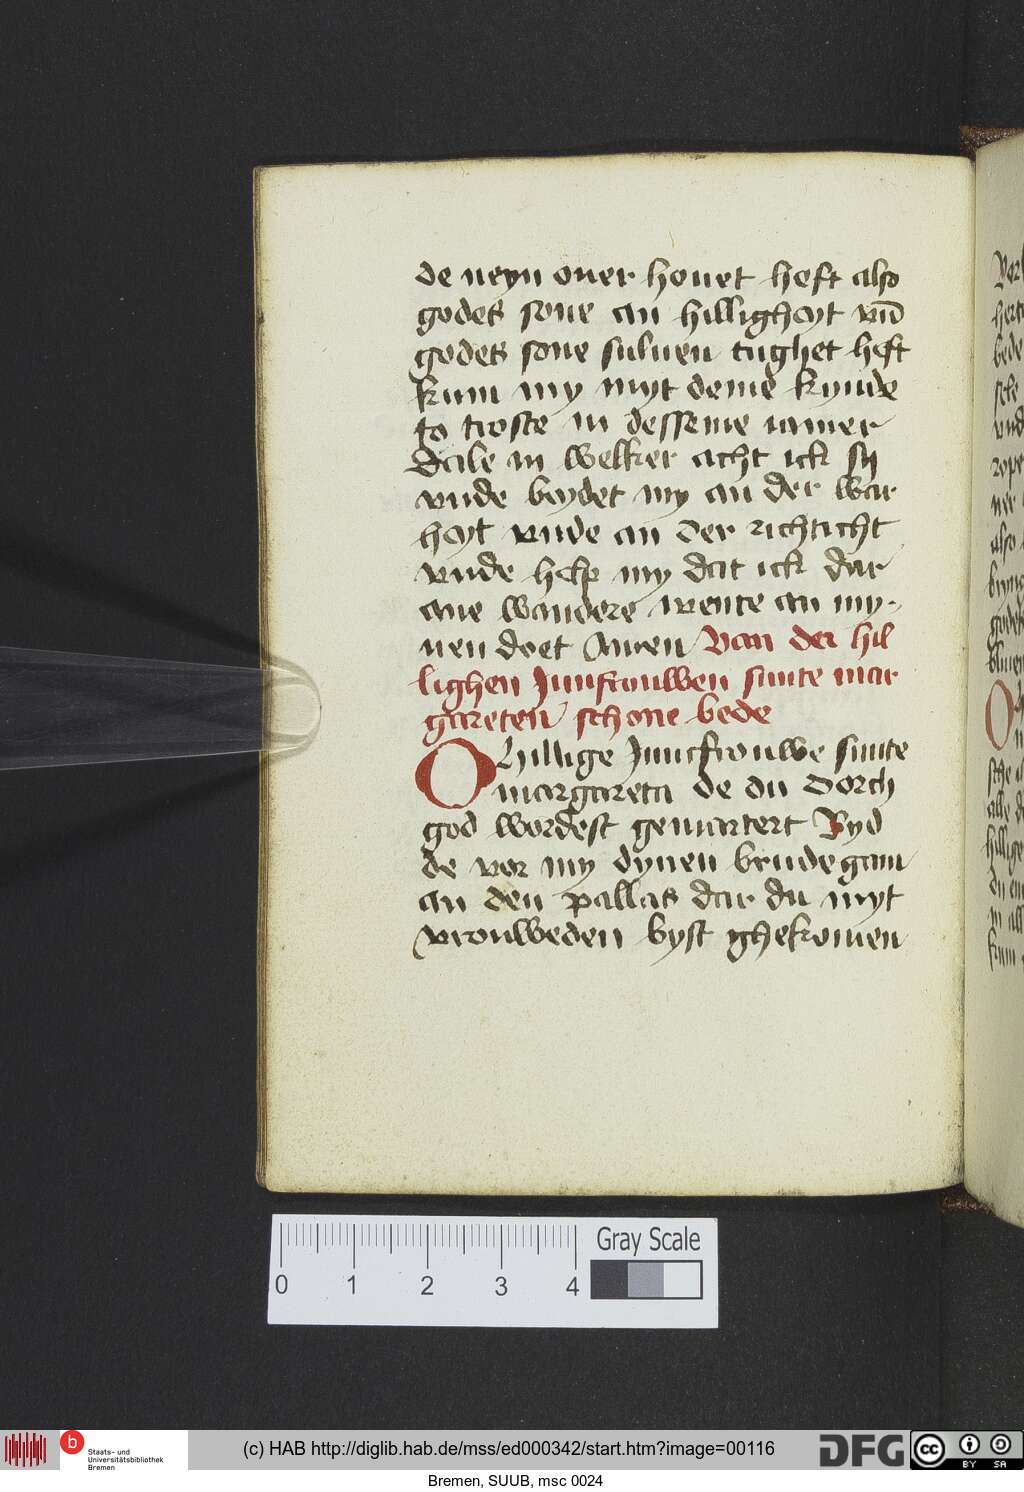 de neyn ouer houet heft also
godes sone an hillighayt vnd
godes sone suluen tughet heft
kum my myt deme kynde
to troste in desseme iamer
dale in welker acht ick sy
vnde beydet my an der war
hayt vnde an der richticht
vnde help my dat ick dar
ane wandere wente an my-
nen doet Amen Van der hil
lighen Junfrouwen sunte mar
gareten schone bede
O hillige Juncfrouwe sunte
margareta de du dorch
god wordest gemartert Byd
de vor my dynen brudegam
an den pallas dar du myt
vrouweden byst ghekomen
0 1 2 3 4
Gray Scale
b
Staats- und
Universitätsbibliothek
Bremen
(c) HAB http://diglib.hab.de/mss/ed000342/start.htm?image=00116
DFG
cc
BY SA
Bremen, SUUB, msc 0024